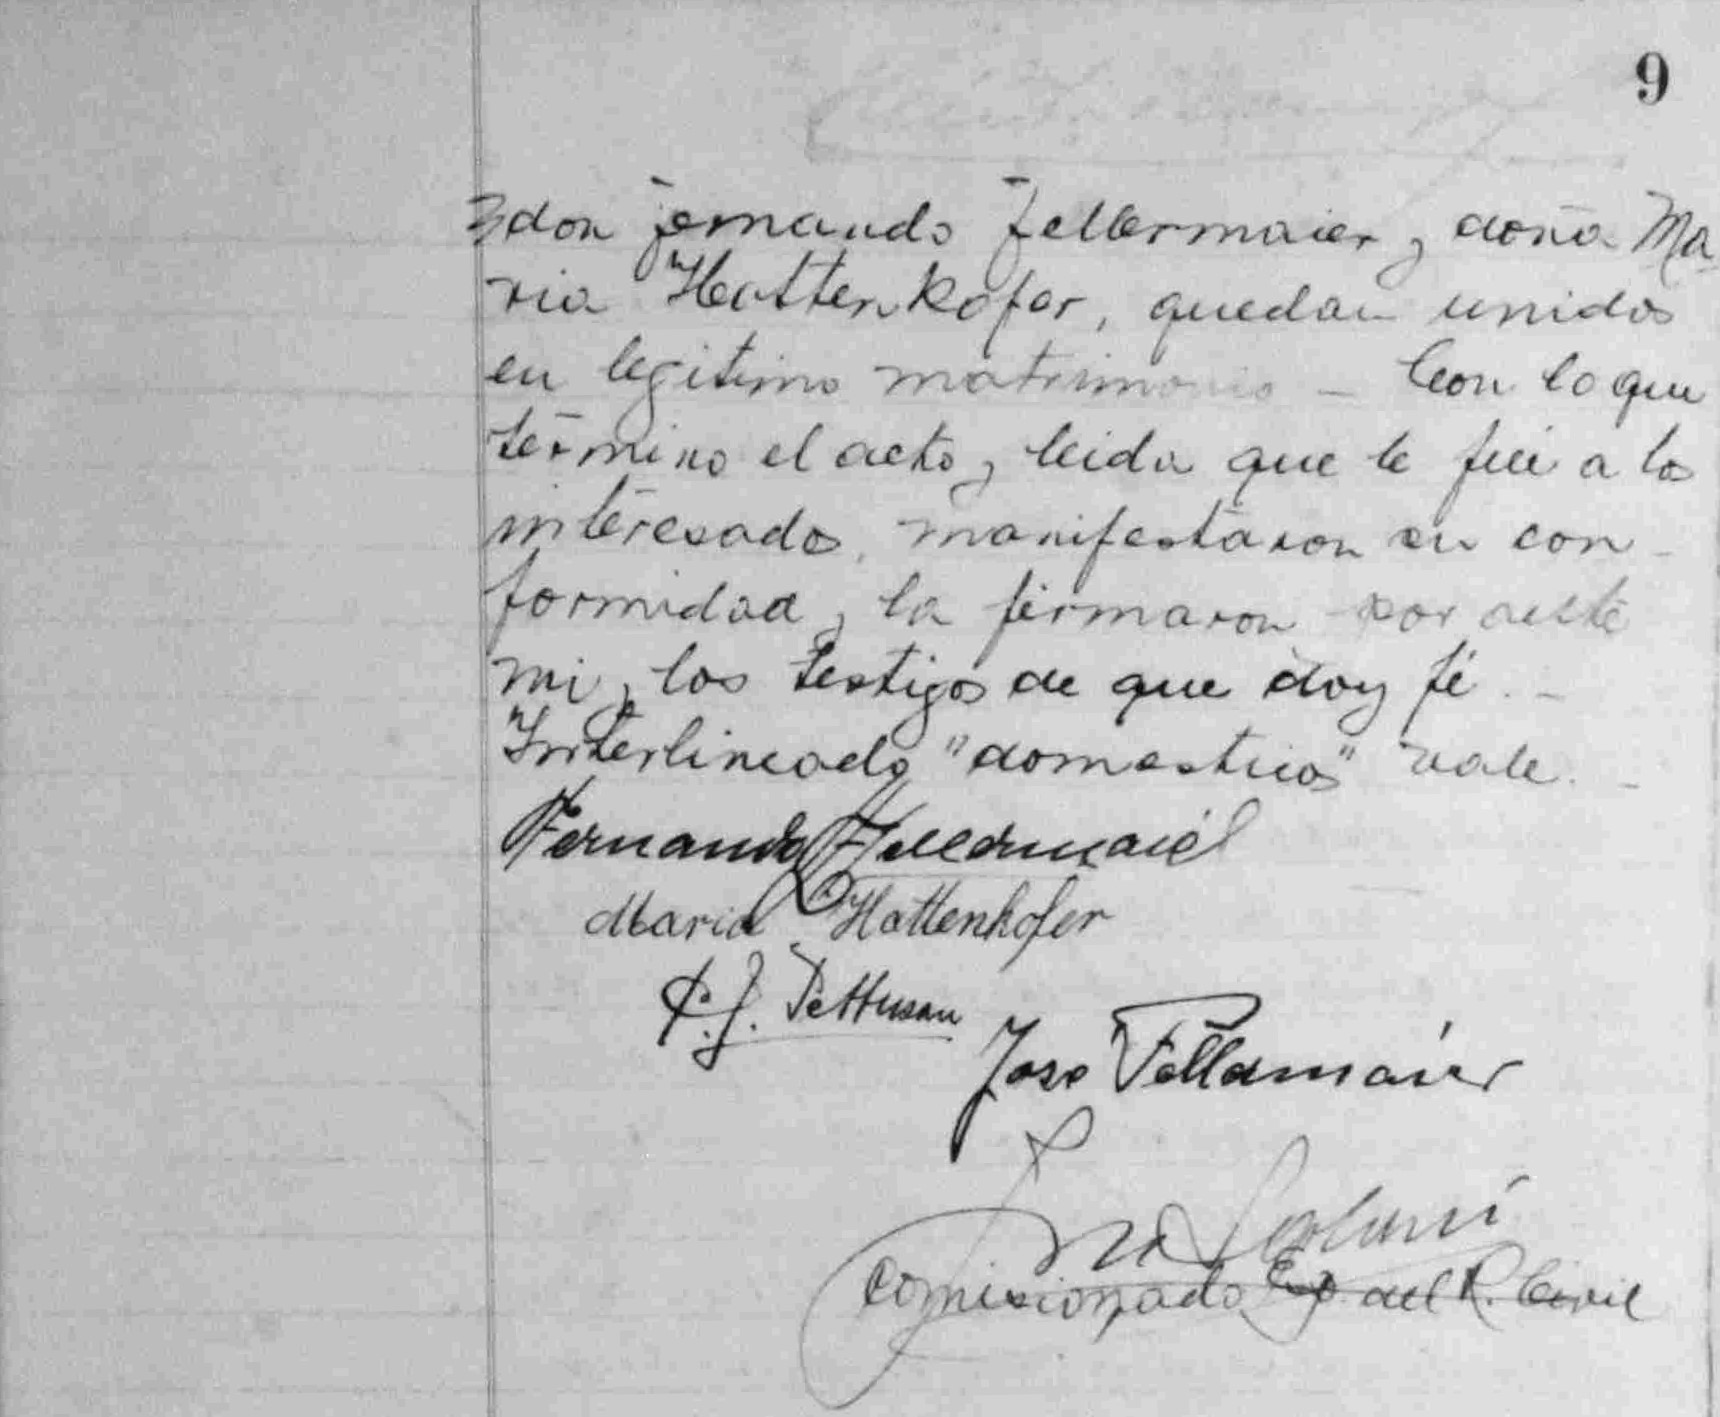 9
don fernando fellermaier y doña Ma
ria Hattenkofer, quedan unidos
en legitimo matrimonio – Con lo que
término el acto y leida que le fué a los
interesados, manifestaron su con-
formidad y la firmaron por ante
mi y los testigos de que doy fé. –
Interlineado "domestico" vale. –
Fernando Fellermaier
Maria Hattenkofer
José Fellermaier
Comisionado del R. Civil